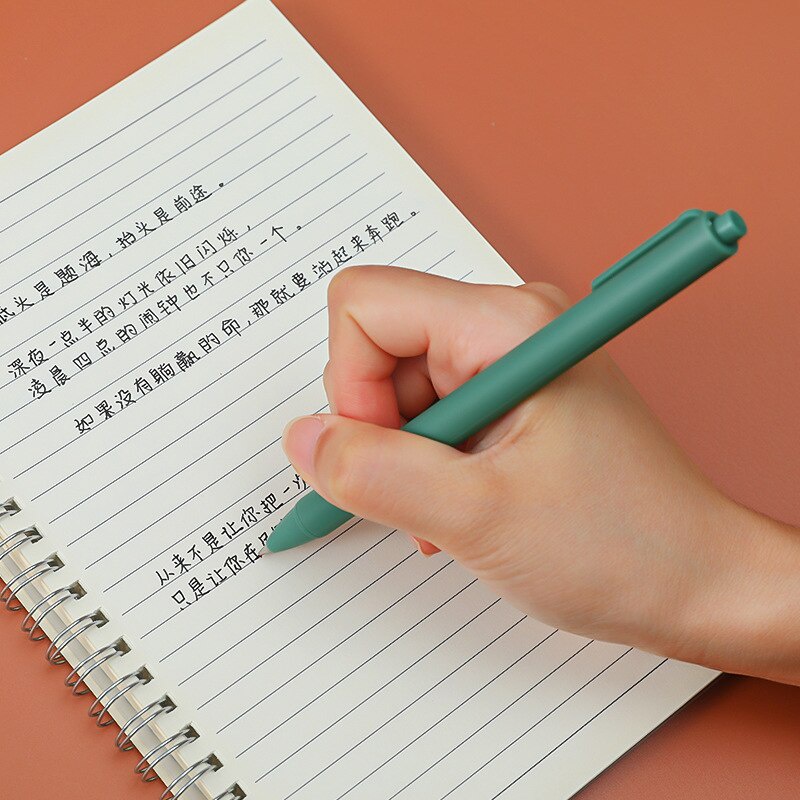 低头是题海，抬头是前途。
深夜一点半的灯光依旧闪烁，
凌晨四点的闹钟也不只你一个。
如果没有躺赢的命，那就要站起来奔跑。
从来不是让你把一
只是让你在